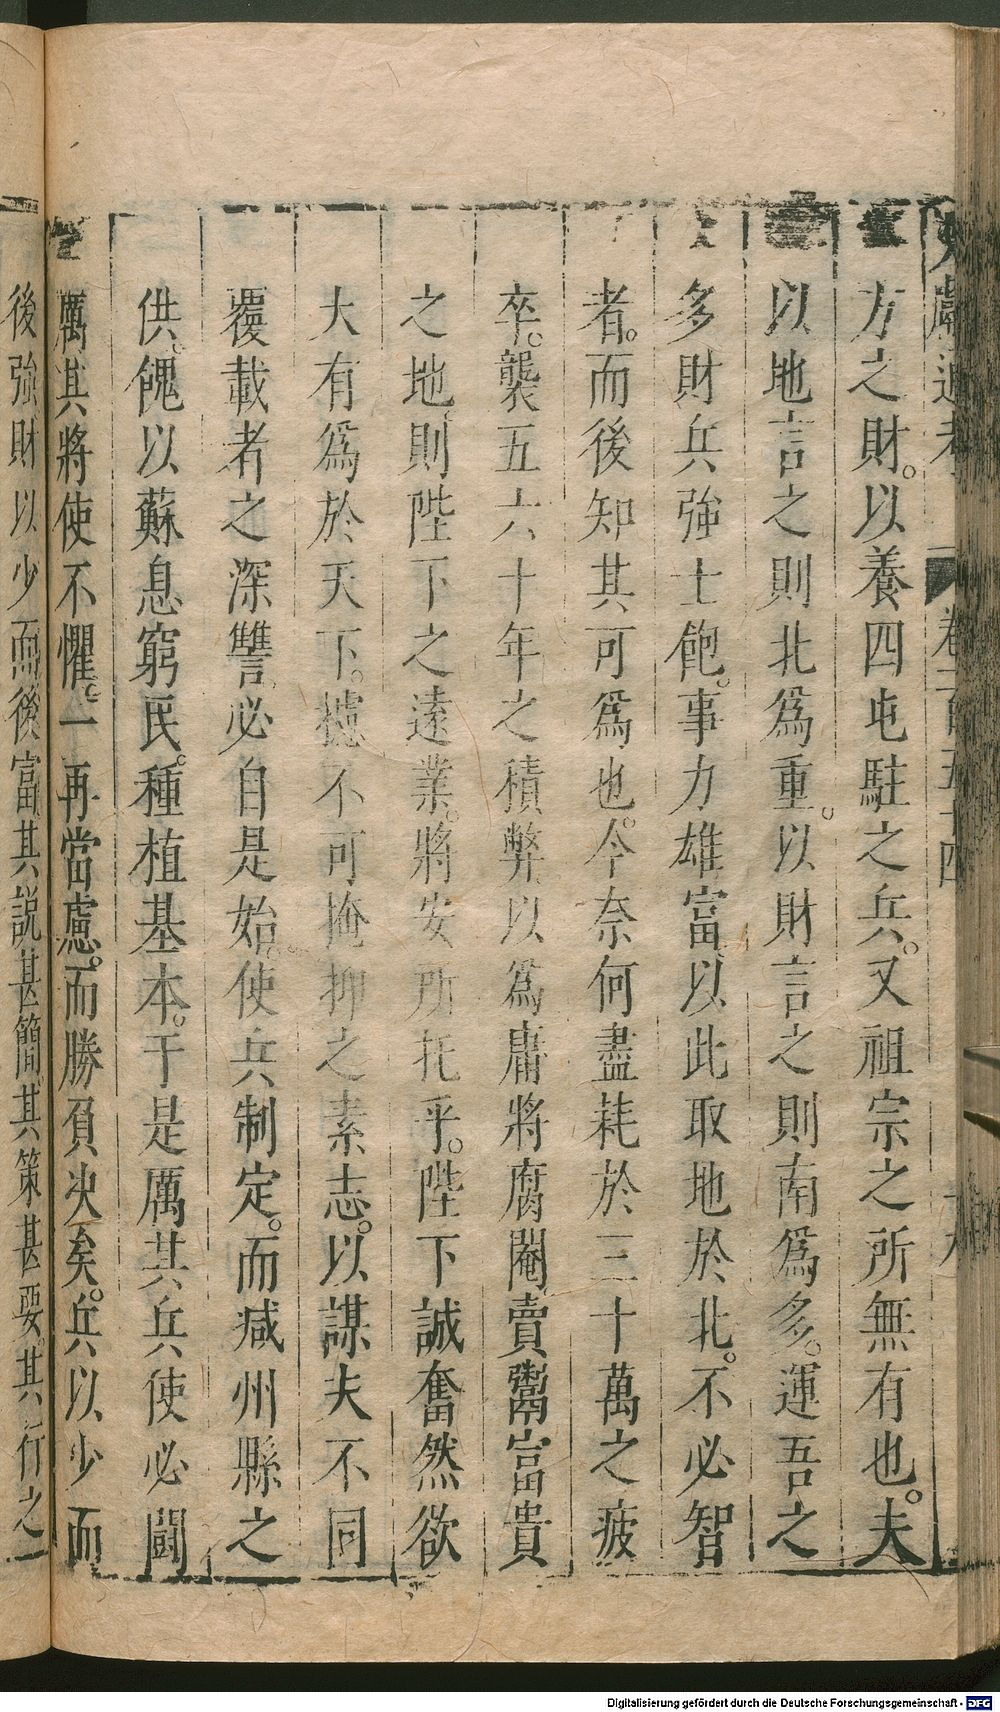 方之財。以養四屯駐之兵。又祖宗之所無有也。夫
以地言之則北爲重。以財言之則南爲多。運吾之
多財兵強士飽。事力雄富。以此取地於北。不必智
者。而後知其可爲也。今奈何盡耗於三十萬之疲
卒。襲五六十年之積弊以爲庸將腐閹賣鬻富貴
之地。則陛下之遠業。將安所托乎。陛下誠奮然欲
大有爲於天下。據不可掩抑之素志。以謀夫不同
覆載者之深讐。必自是始。使兵制定。而减州縣之
供。餽以蘇息窮民。種植基本。于是厲其兵使必鬬
厲其將使不懼。一再當慮。而勝負决矣。兵以少而
後強財以少而後富其説甚簡。其策甚要。其行之
卷一百五十四
Digitalisierung gefördert durch die Deutsche Forschungsgemeinschaft - DFG